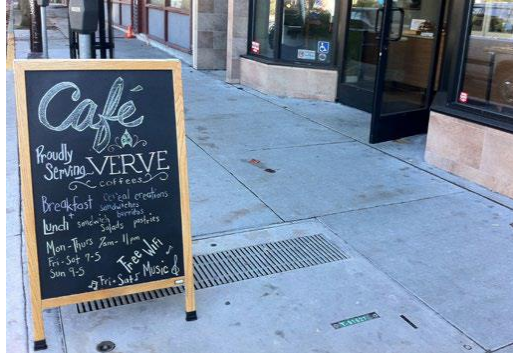 Café
Proudly
Serving VERVE
coffees
Breakfast cereal creations
sandwitches
burritos
Lunch + sandwich
salads pastries
Mon - Thurs 7am - 11pm
Fri - Sat 7-5
Sun 9-5
Free Wifi
Fri - Sat Music